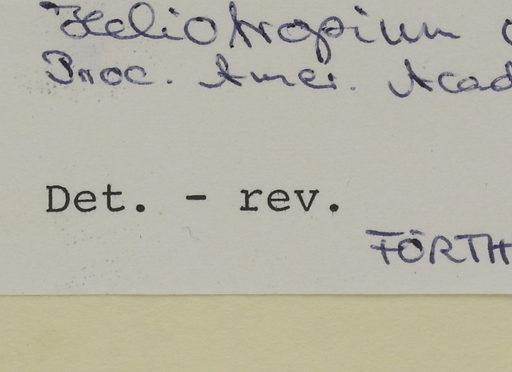 Heliotropium
Proc. Amer. Acad
Det. - rev.
FÖRTH